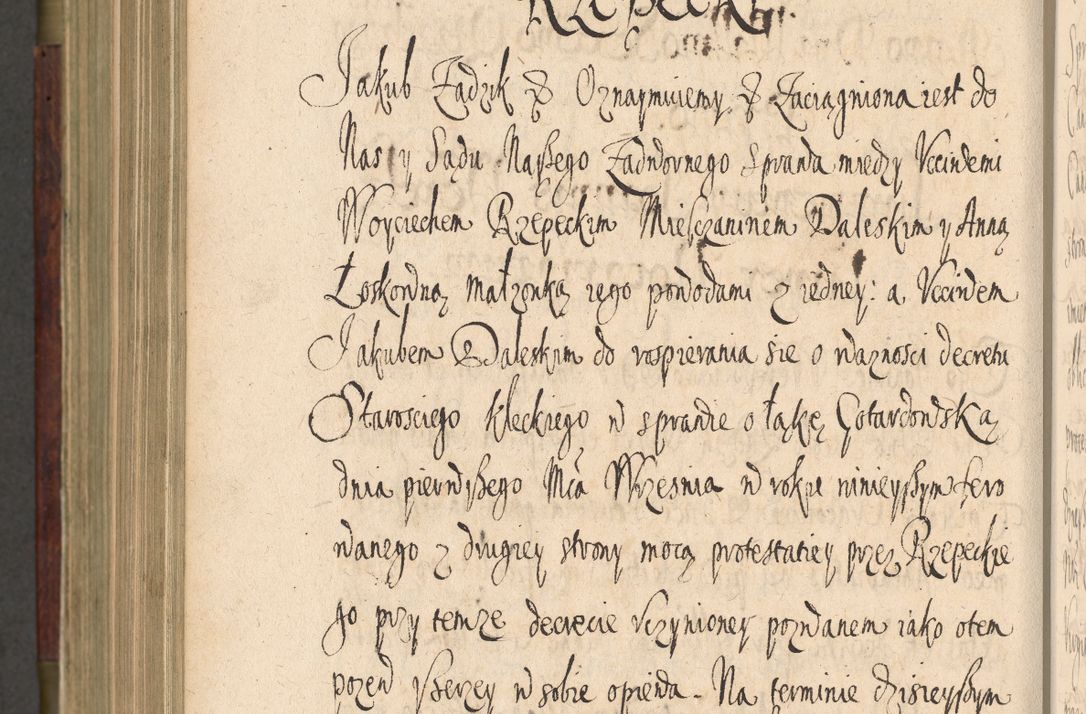 Rzepecki.
Jakub Zadzik &c Oznaymuiemy &c Zaciągniona iest do
Nas y Sądu Naszego Zadwornego sprawa miedzy Vccíwemi
Woyciechem Rzepeckim Miesczaninem Daleskim y Anną
Łoskowną małzonką iego powodami z iedney: a Vcciwem
Jakubem Daleskim do rospierania sie o wazności decretu
Starosciego Kleckiego w sprawie o łąkę Gotardowską
dnia pierwszego Mca Wrzesnia w roku ninieyszym fero
wanego z drugiey strony mocą protestatiey przez Rzepeckie
go przy temze decrecie vczynioney pozwanem iako o tem
pozew szerzey w sobie opiewa. Na terminie dzisieyszym